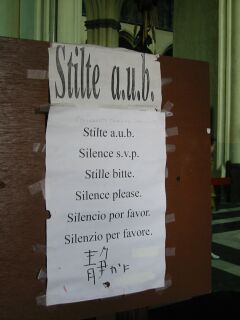 Stilte a.u.b.
Stilte a.u.b.
Silence s.v.p.
Stille bitte.
Silence please.
Silencio por favor.
Silenzio per favore.
静かに